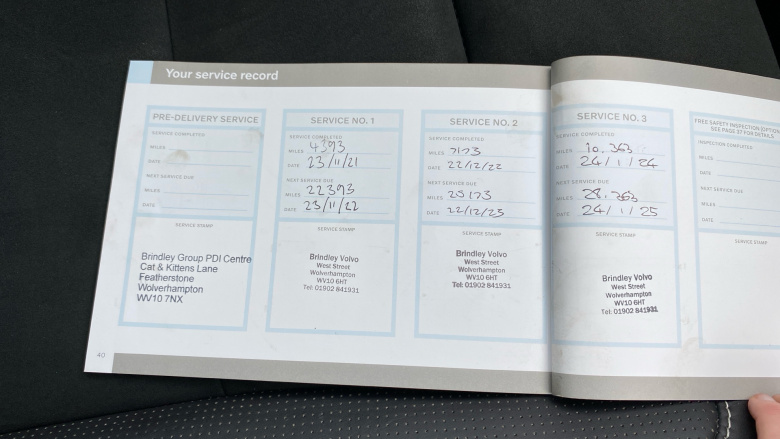 Your service record
PRE-DELIVERY SERVICE
SERVICE COMPLETED
MILES
DATE
NEXT SERVICE DUE
MILES
DATE
SERVICE STAMP
Brindley Group PDI Centre
Cat & Kittens Lane
Featherstone
Wolverhampton
WV10 7NX
SERVICE NO. 1
SERVICE COMPLETED
MILES 4393
DATE 23/11/21
NEXT SERVICE DUE
MILES 22393
DATE 23/11/22
SERVICE STAMP
Brindley Volvo
West Street
Wolverhampton
WV10 6HT
Tel: 01902 841931
SERVICE NO. 2
SERVICE COMPLETED
MILES 7173
DATE 22/12/22
NEXT SERVICE DUE
MILES 25173
DATE 22/12/23
SERVICE STAMP
Brindley Volvo
West Street
Wolverhampton
WV10 6HT
Tel: 01902 841931
SERVICE NO. 3
SERVICE COMPLETED
MILES 10.363
DATE 24/1/24
NEXT SERVICE DUE
MILES 28.363
DATE 24/1/25
SERVICE STAMP
Brindley Volvo
West Street
Wolverhampton
WV10 6HT
Tel: 01902 841931
FREE SAFETY INSPECTION
SEE PAGE 37 FOR DETAILS
INSPECTION COMPLETED
MILES
DATE
NEXT SERVICE DUE
MILES
DATE
SERVICE STAMP
40